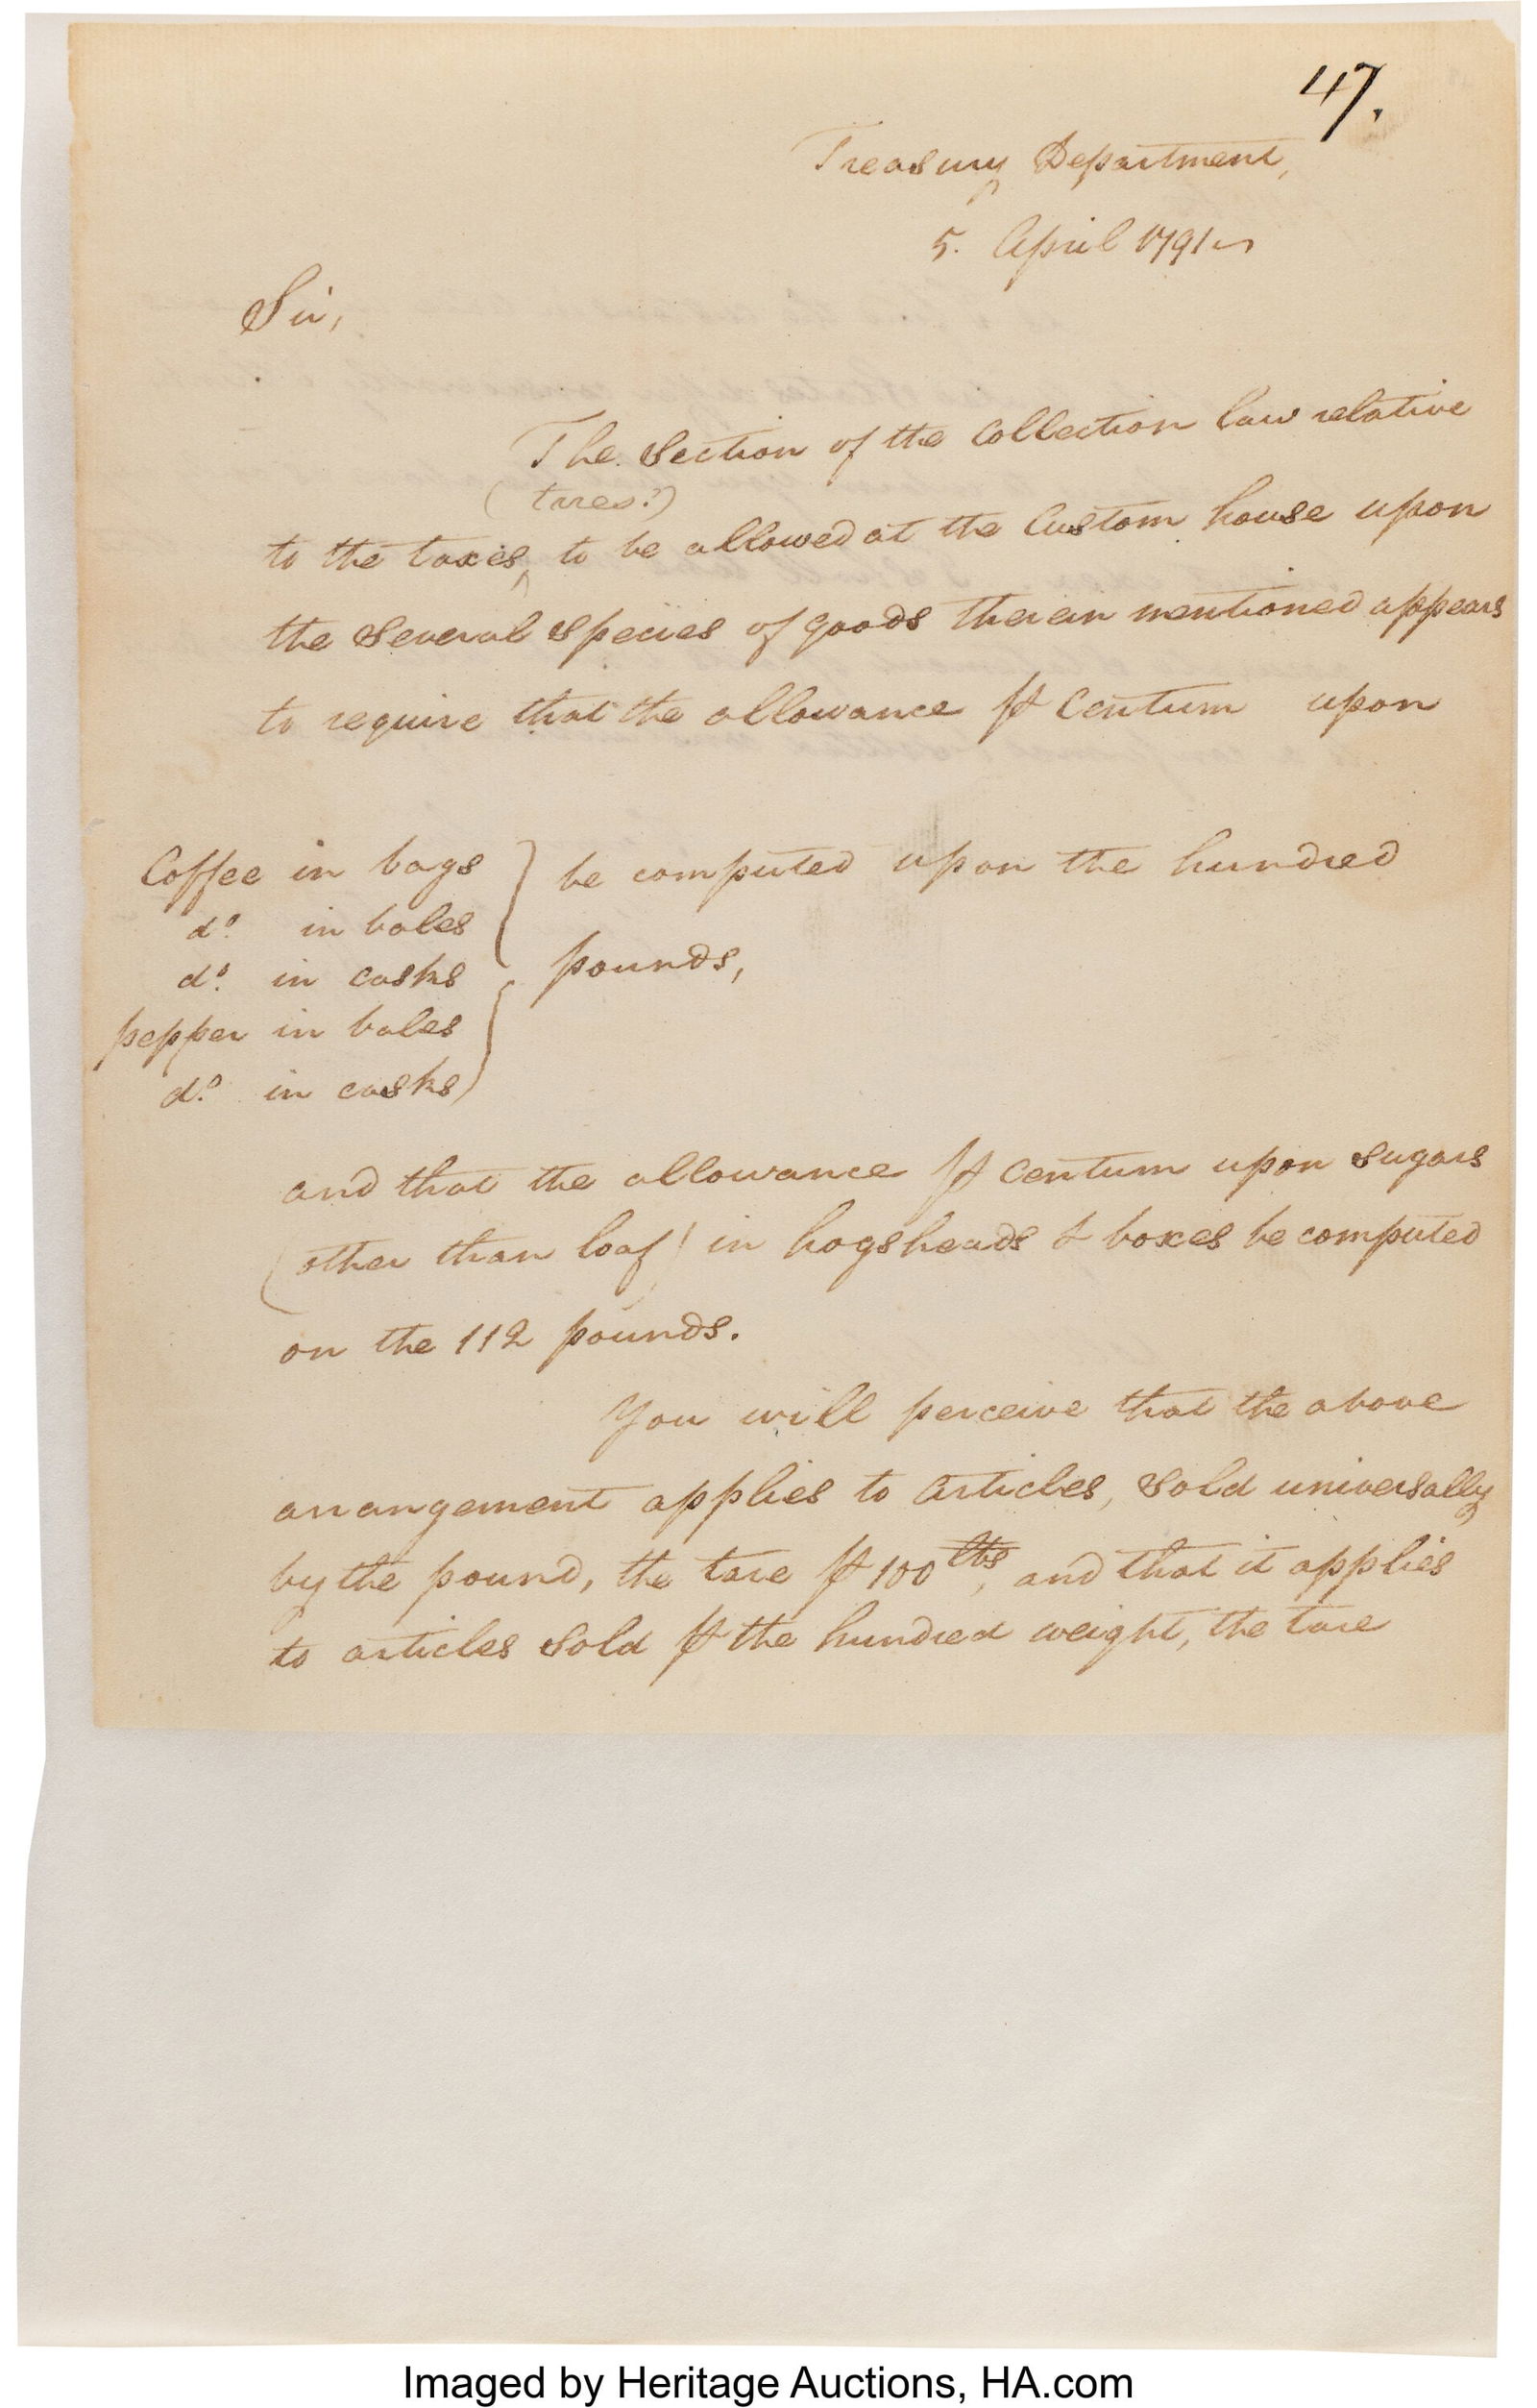 47.
Treasury Department,
5. April 1791
Sir,
The Section of the Collection law relative
(tares?)
to the taxes, to be allowed at the Custom house upon
the Several Species of goods therein mentioned appears
to require that the allowance ⅌ Centum upon
Coffee in bags } be computed upon the hundred
do. in bales
do. in casks pounds,
pepper in bales
do. in casks
and that the allowance ⅌ Centum upon Sugars
(other than loaf) in hogsheads & boxes be computed
on the 112 pounds.
You will perceive that the above
arrangement applies to articles, Sold universally
by the pound, the tare ⅌ 100 lbs, and that it applies
to articles Sold ⅌ the hundred weight, the tare
Imaged by Heritage Auctions, HA.com